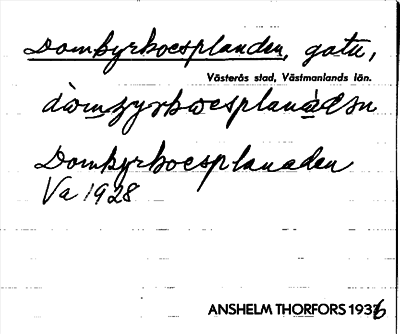 Domkyrkoesplanaden, gata,
Västerås stad, Västmanlands län.
dòmçyrkoesplanàdən
Domkyrkoesplanaden
Va 1928
ANSHELM THORFORS 1936